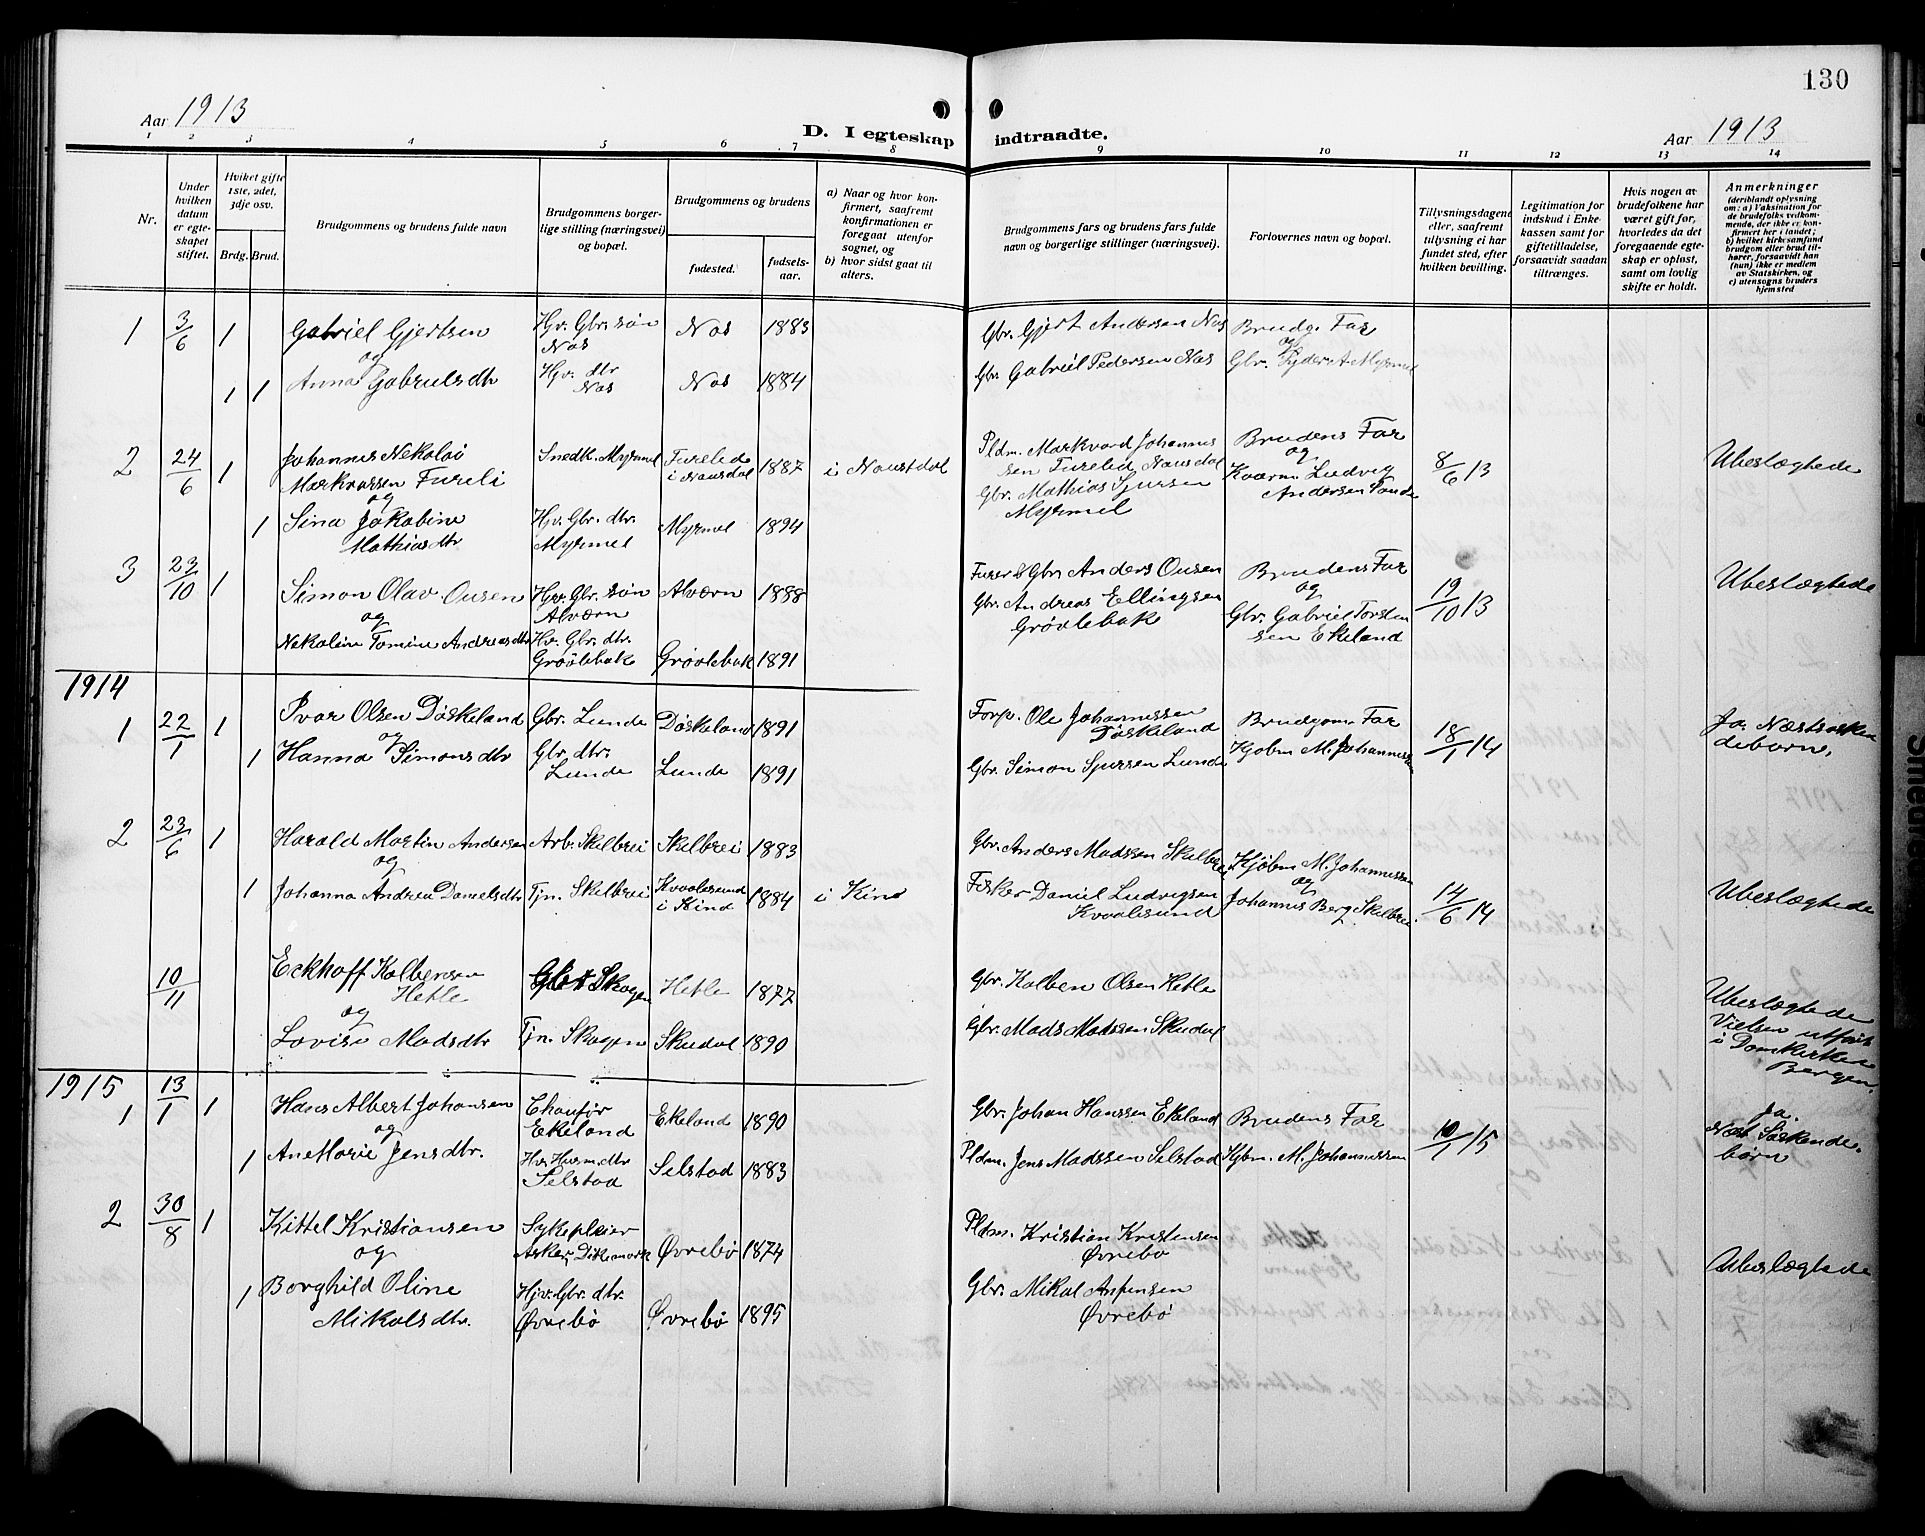 130
Aar 1913
D. I egteskap indtraadte.
Aar 1913
1 2 3 4 5 6 7 8 9 10 11 12 13 14
Nr.
Under hvilken datum er egteskapet stiftet.
Hviket gifte 1ste, 2det, 3dje osv.
Brdg. Brud.
Brudgommens og brudens fulde navn
Brudgommens borgerlige stilling (næringsvei) og bopæl.
Brudgommens og brudens
fødested.
fødselsaar.
a) Naar og hvor konfirmert, saafremt konfirmationen er foregaat utenfor sognet, og
b) hvor sidst gaat til alters.
Brudgommens fars og brudens fars fulde navn og borgerlige stillinger (næringsvei).
Forlovernes navn og bopæl.
Tillysningsdagene eller, saafremt tillysning ei har fundet sted, efter hvilken bevilling.
Legitimation for indskud i Enkekassen samt for giftetilladelse, forsaavidt saadan tiltrænges.
Hvis nogen av brudefolkene har været gift før, hvorledes da det foregaaende egteskap er opløst, samt om lovlig skifte er holdt.
Anmerkninger (deriblandt oplysning om: a) Vaksination for de brudefolks vedkommende, der ikke er konfirmert her i landet; b) hvilket kirkesamfund brudgom eller brud tilhører, forsaavidt han (hun) ikke er medlem av Statskirken, og c) utensogns bruders hjemsted
1 3/6 1 Gabriel Gjertsen Hjv. Gbr. søn Nos Nos 1883 Gbr. Gjert Andersen Nos Brudg. Far
og og
1 1 Anna Gabrielsdtr Hjv. dtr Nos Nos 1884 Gbr. Gabriel Pedersen Nos Gbr. A Myrmel
2 24/6 1 Johannes Nekolai Markvarsen Fureli Snedk. Myrmel Furelid i Nausdal 1887 i Naustdal Pldm. Markvard Johannessen Furelid Nausdal Brudens Far 8/6 13 Ubeslægtede
og og
1 Sina Jakobine Mathiasdtr Hjv. Gbr. dtr. Myrmel Myrmel 1894 Gbr. Mathias Sjursen Myrmel Kvarm. Ludvig Andersen
3 23/10 1 Simon Olav Ousen Hjv. Gbr. søn Alværn Alværn 1888 Furer & Gbr. Anders Ousen Brudens Far 19/10 13 Ubeslægtede
og og
Nekoline Tomine Andreasdtr Hv. Gbr. dtr. Grövlebak Grövlebak 1891 Gbr. Andreas Ellingsen Grövlebak Gbr. Gabriel Torstensen Ekeland
1914
1 22/1 1 Ivar Olsen Döskeland Gbr. Lunde Döskeland 1891 Forp. Ole Johannessen Döskeland Brudgom. Far 18/1 14 Ja. Næstsøskendebørn,
og
1 Hanna Simonsdtr Gbr. dtr. Lunde Lunde 1891 Gbr. Simon Sjursen Lunde Kjøbm M. Johannessen
2 23/6 1 Harald Martin Andersen Arb. Skelbrei Skelbrei 1883 Gbr. Anders Madssen Skelbrei Kjøbm M. Johannessen
og og
1 Johanna Andrea Danielsdtr Tjn. Skelbrei Kvalesund i Kind 1884 i Kind Fisker Daniel Ludvigsen Kvalesund Johannes Berg Skelbrei 14/6 14 Ubeslægtede
10/11 Eckhoff Kolbensen Hetle Gbr Skogen Hetle 1877 Gbr. Kolben Olsen Hetle Ubeslægtede
og
Lovise Madsdtr Tjn. Skogen Skudal 1890 Gbr. Mads Madssen Skudal Vielsen utført i Domkirken Bergen.
1915
1 13/1 1 Hans Albert Johansen Chauför Ekeland Ekeland 1890 Gbr. Johan Hanssen Ekeland Brudens Far 10/1 15 Ja. Næst Søskendebørn
og
1 Ane Marie Jensdtr. Hv. Husm. dtr Selstad Selstad 1883 Pldm. Jens Madssen Selstad Kjbm. M. Johannessen
2 30/8 1 Kittel Kristiansen Sykepleier Asker, Dikemark Øvrebö 1874 Pldm. Kristian Kristensen Øvrebö Ubeslægtede
og
1 Borghild Oline Mikalsdtr. Hjv. Gbr. dtr. Øvrebö Øvrebö 1895 Gbr. Mikal Øvrebö